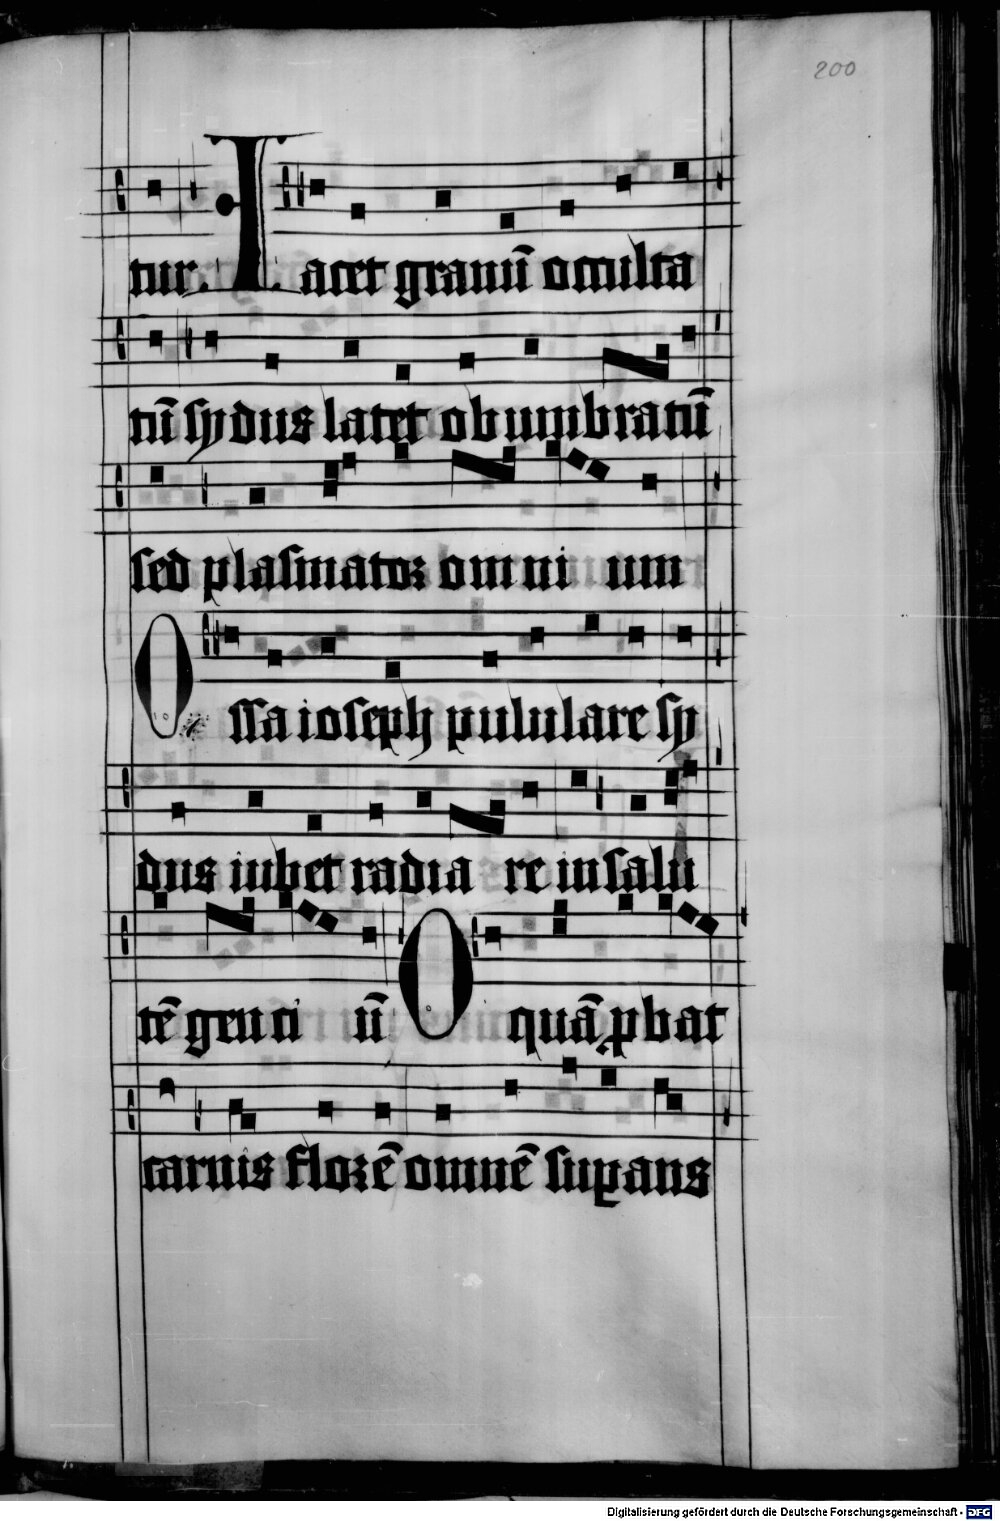 200
tur. Iacet granū occulta
tū sydus latet obumbratū
sed plasmator omni um
Ossa ioseph pululare sy
dus iubet radia re in salu
tē gen ci ū O quā ꝓbat
carnis florē omnē suꝑans
Digitalisierung gefördert durch die Deutsche Forschungsgemeinschaft - DFG